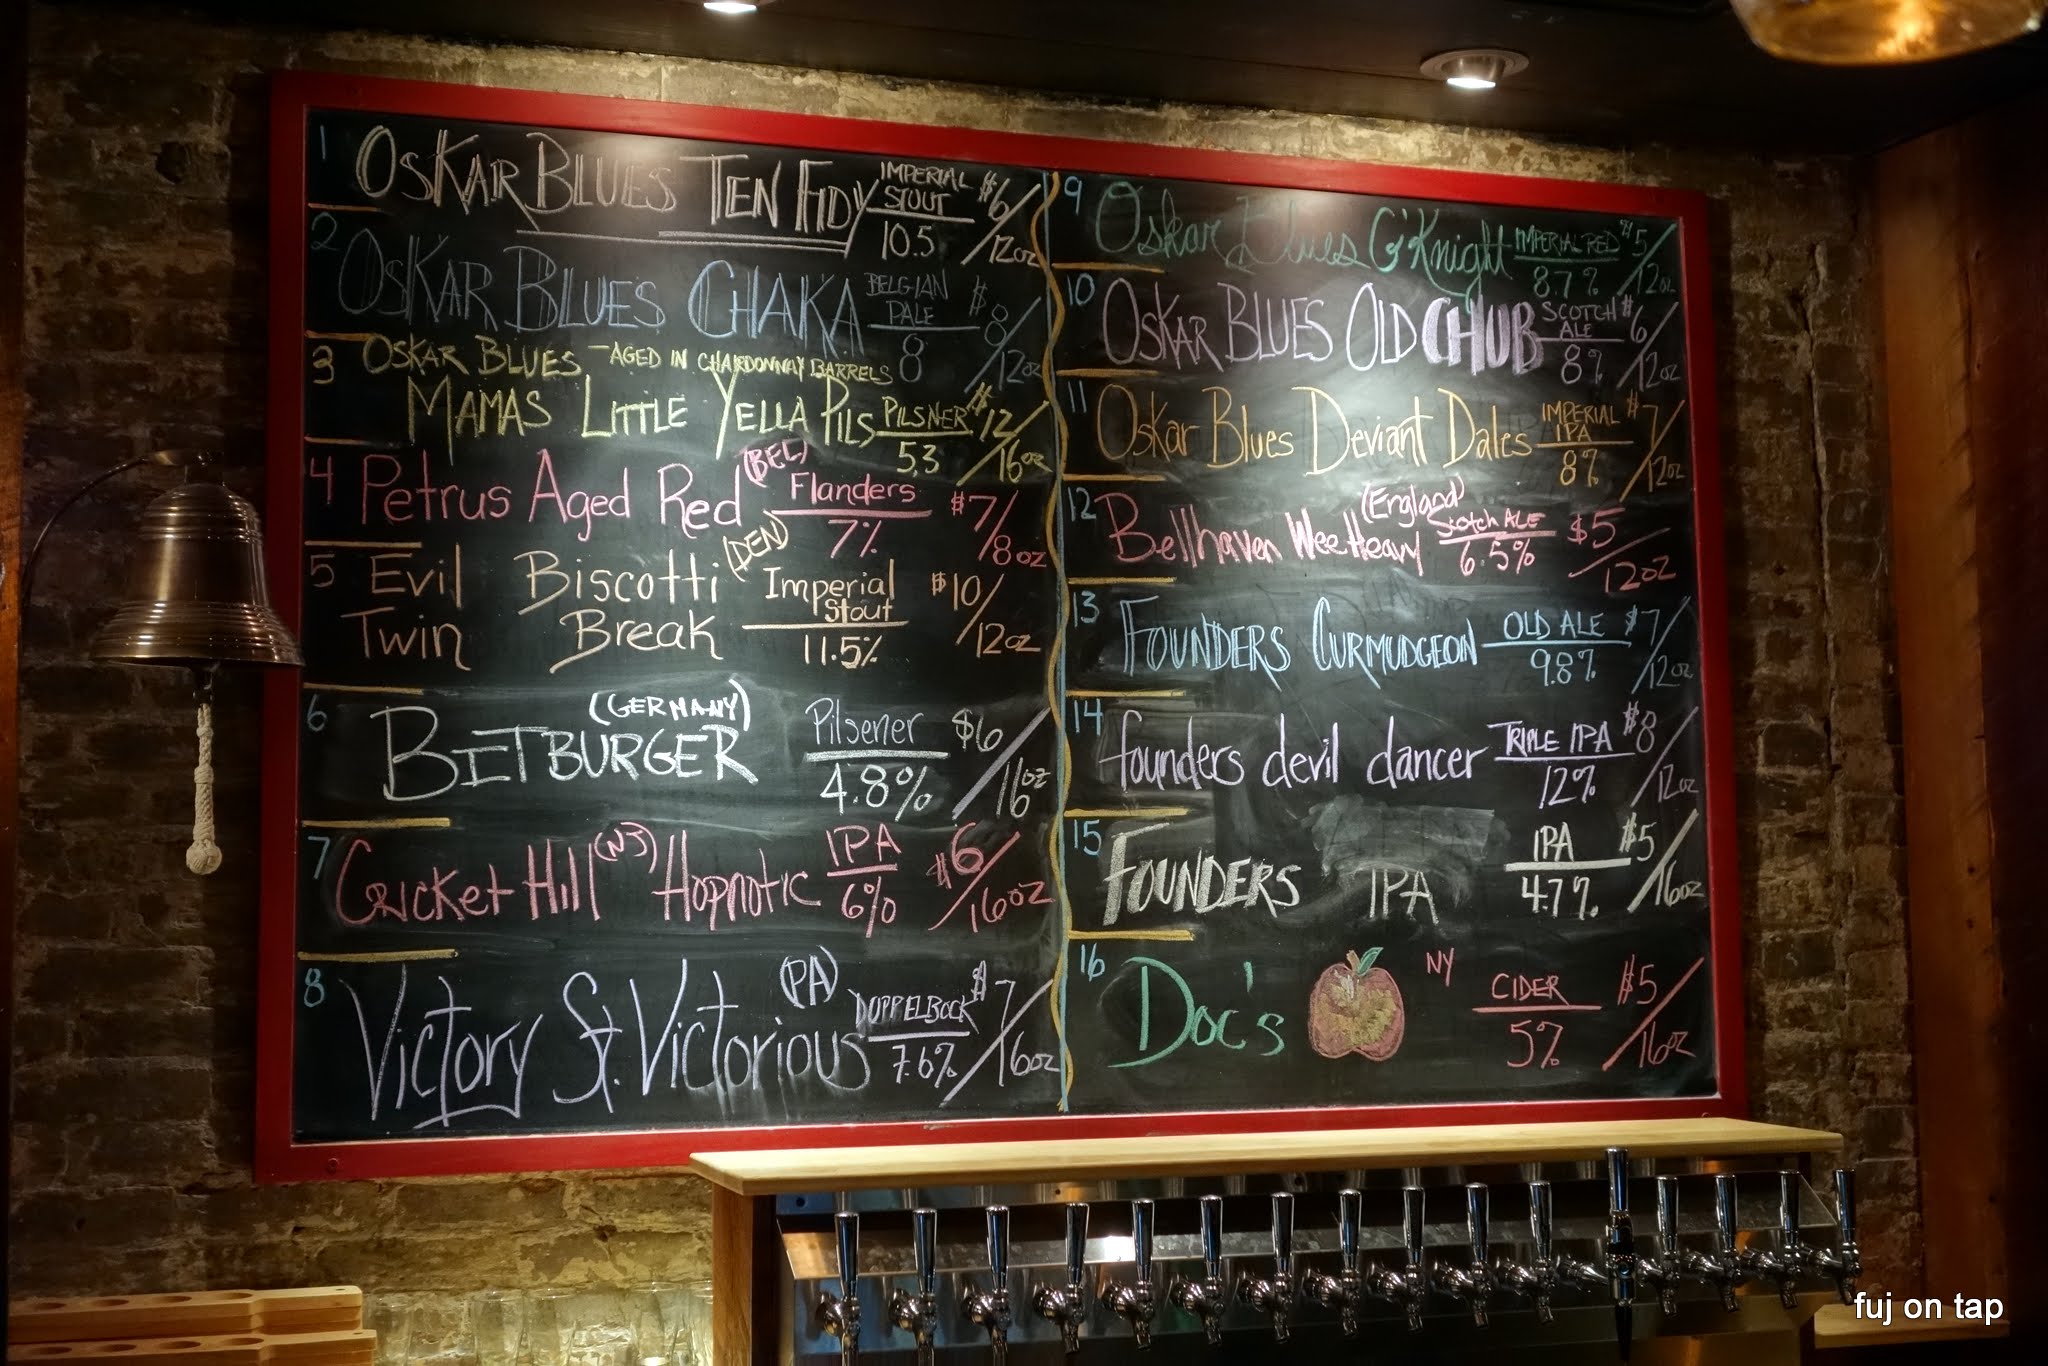 1 OSKAR BLUES TEN FIDY IMPERIAL STOUT 10.5 $6/12oz
2 OSKAR BLUES CHAKA BELGIAN PALE 8 $8/12oz
3 OSKAR BLUES - AGED IN CHARDONNAY BARRELS
MAMAS LITTLE YELLA PILS PILSNER 5.3 $12/16oz
4 Petrus Aged Red (BEL) Flanders 7% $7/8oz
5 Evil Twin Biscotti Break (DEN) Imperial Stout 11.5% $10/12oz
6 BITBURGER (GERMANY) Pilsener 4.8% $6/16oz
7 Cricket Hill (NJ) Hopnotic IPA 6% $6/16oz
8 Victory St. Victorious (PA) DOPPELBOCK 7.6% $7/16oz
9 Oskar Blues G'Knight IMPERIAL RED 8.7% $5/12oz
10 OSKAR BLUES OLD CHUB SCOTCH ALE 8% $6/12oz
11 Oskar Blues Deviant Dales IMPERIAL IPA 8% $7/12oz
12 Bellhaven Wee Heavy (England) Scotch ALE 6.5% $5/12oz
13 FOUNDERS CURMUDGEON OLD ALE 9.8% $7/12oz
14 founders devil dancer TRIPLE IPA 12% $8/12oz
15 FOUNDERS IPA IPA 4.7% $5/16oz
16 Doc's NY CIDER 5% $5/16oz
fuj on tap